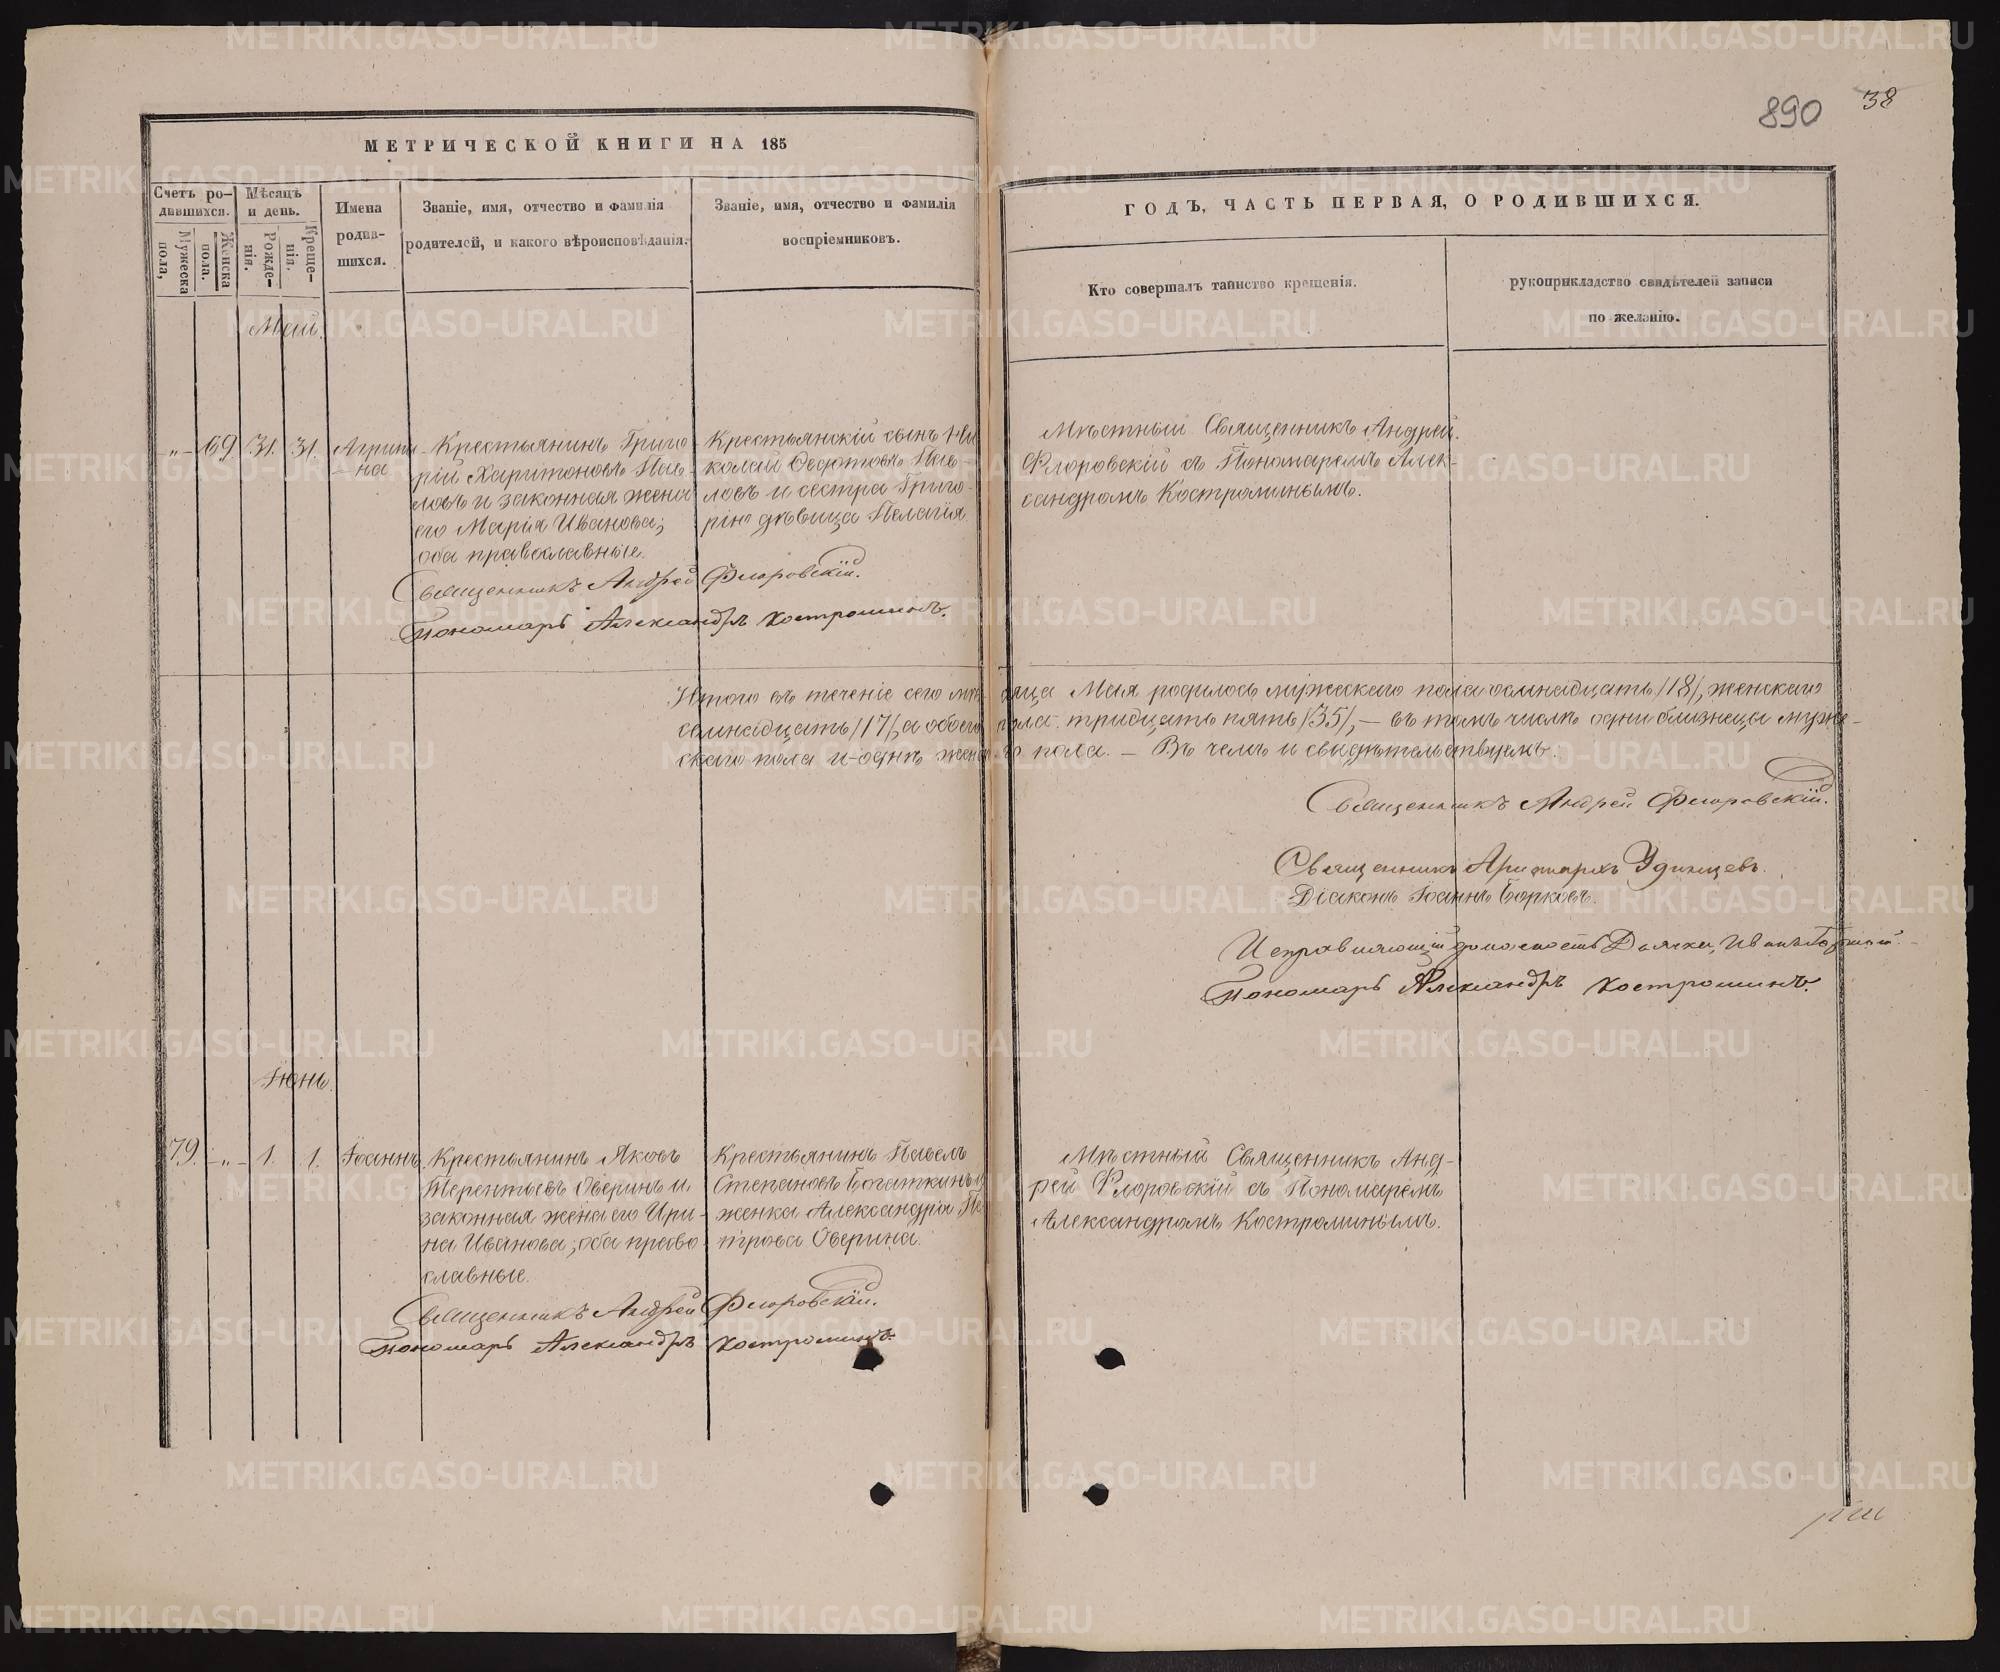 890 38
МЕТРИЧЕСКОЙ КНИГИ НА 185
Счетъ ро-
дившихся.
Мужеска
пола,
Женска
пола.
Мѣсяцъ
и день.
Рожде-
нія.
Креще-
нія.
Имена
родив-
шихся.
Званіе, имя, отчество и фамилія
родителей, и какого вѣроисповѣданія.
Званіе, имя, отчество и фамилія
воспріемниковъ.
ГОДЪ, ЧАСТЬ ПЕРВАЯ, О РОДИВШИХСЯ.
Кто совершалъ таинство крещенія.
рукоприкладство свидѣтелей записи
по желанію.
Май.
„ 69 31. 31. Агрипи-
на
Крестьянинъ Григо
рій Харитоновъ Пав
ловъ и законная жена
его Марія Иванова;
оба православные.
Крестьянскій сынъ Ни
колай Федотовъ Пав-
ловъ и сестра Григо-
рія дѣвица Пелагія
Мѣстный Священникъ Андрей
Флоровскій съ Пономаремъ Алек-
сандромъ Костроминымъ.
Священникъ Андрей Флоровскій.
Пономарь Александръ Костроминъ.
Итого въ теченіе сего мѣсяца Мая родилось мужескаго пола осмнадцать /18/, женскаго
семнадцать /17/, а обоего пола тридцать пять /35/, — въ томъ числѣ одни близнецы муже-
скаго пола и одни женскаго пола. — Въ чемъ и свидѣтельствуемъ:
Священникъ Андрей Флоровскій.
Священникъ Аристархъ Удинцевъ.
Діаконъ Іоаннъ Борковъ.
Исправляющій должность Дьячка, Иванъ
Пономарь Александръ Костроминъ.
Іюнь.
79. „ 1. 1. Іоаннъ
Крестьянинъ Яковъ
Терентьевъ Оверинъ и
законная жена его Ири-
на Иванова; оба право
славные.
Крестьянинъ Павелъ
Степановъ Богаткинъ и
женка Александра Пе
трова Оверина.
Мѣстный Священникъ Анд-
рей Флоровскій съ Пономаремъ
Александромъ Костроминымъ.
Священникъ Андрей Флоровскій.
Пономарь Александръ Костроминъ.